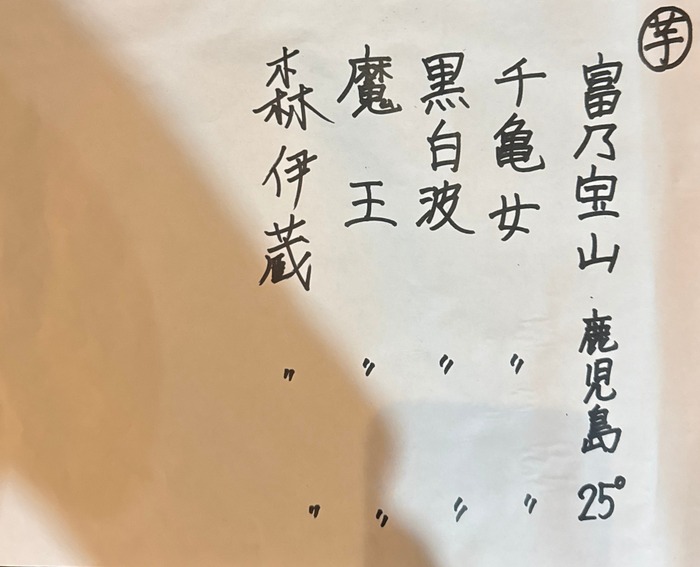 芋
富乃宝山 鹿児島 25°
千亀女 〃 〃
黒白波 〃 〃
魔王 〃 〃
森伊蔵 〃 〃